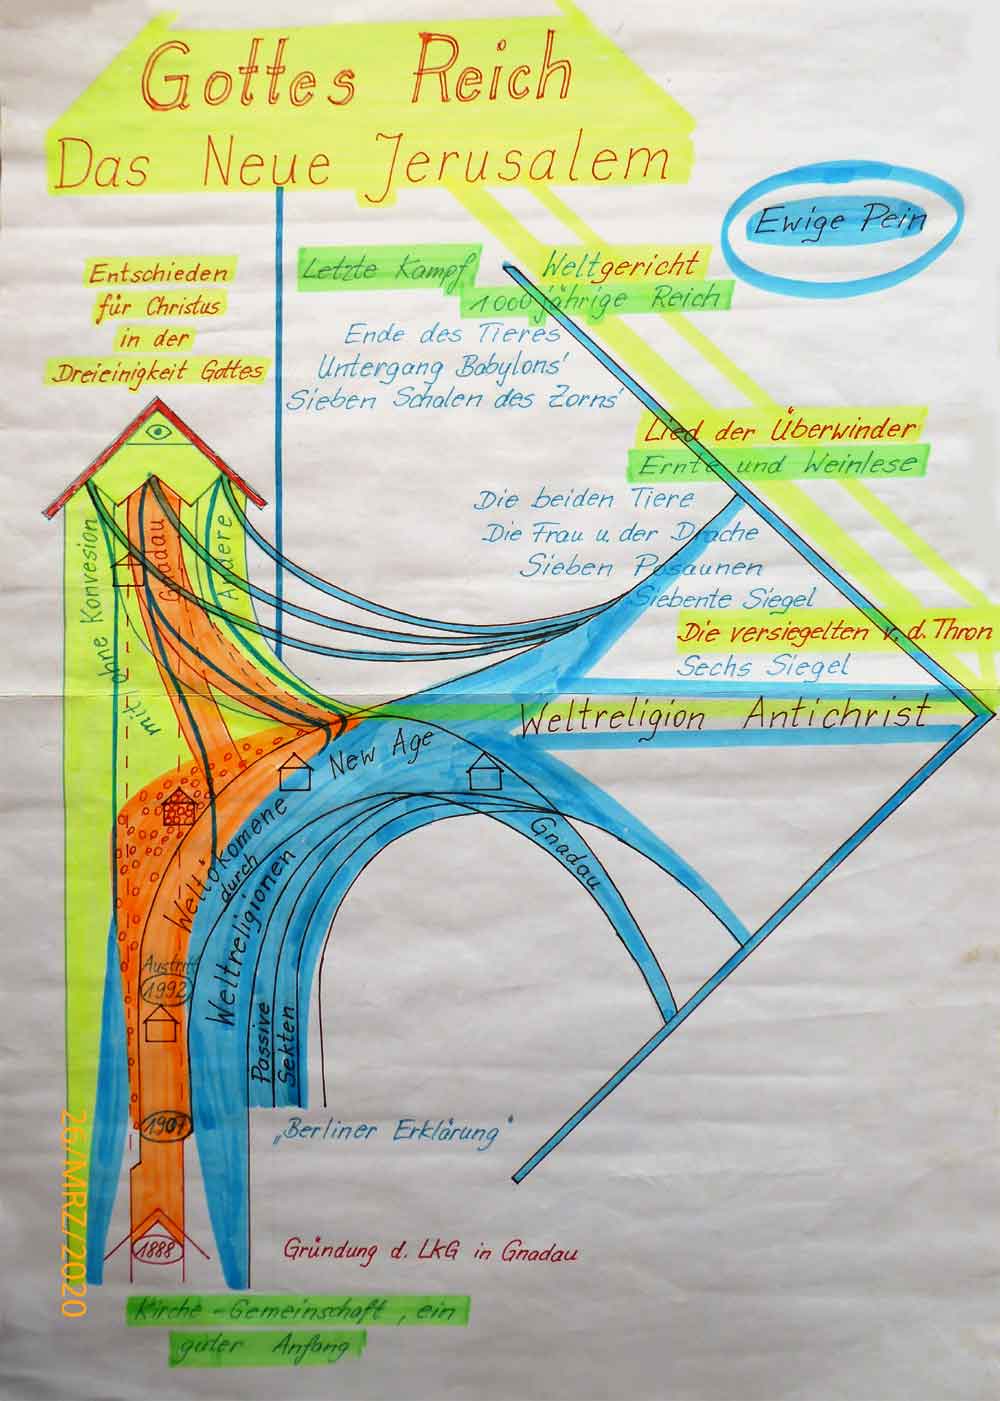 Gottes Reich
Das Neue Jerusalem
Ewige Pein
Entschieden
für Christus
in der
Dreieinigkeit Gottes
Letzte Kampf
Weltgericht
1000 jährige Reich
Ende des Tieres
Untergang Babylons'
Sieben Schalen des Zorns'
Lied der Überwinder
Ernte und Weinlese
Die beiden Tiere
Die Frau u. der Drache
Sieben Posaunen
Siebente Siegel
Die versiegelten v. d. Thron
Sechs Siegel
ohne Konvesion
mit
Gnadau
Andere
Weltreligion Antichrist
New Age
Gnadau
Weltökomene
durch
Weltreligionen
Passive
Sekten
Austritt
1992
1907
„Berliner Erklärung"
1888
Gründung d. LKG in Gnadau
Kirche - Gemeinschaft, ein
guter Anfang
26/MRZ/2020